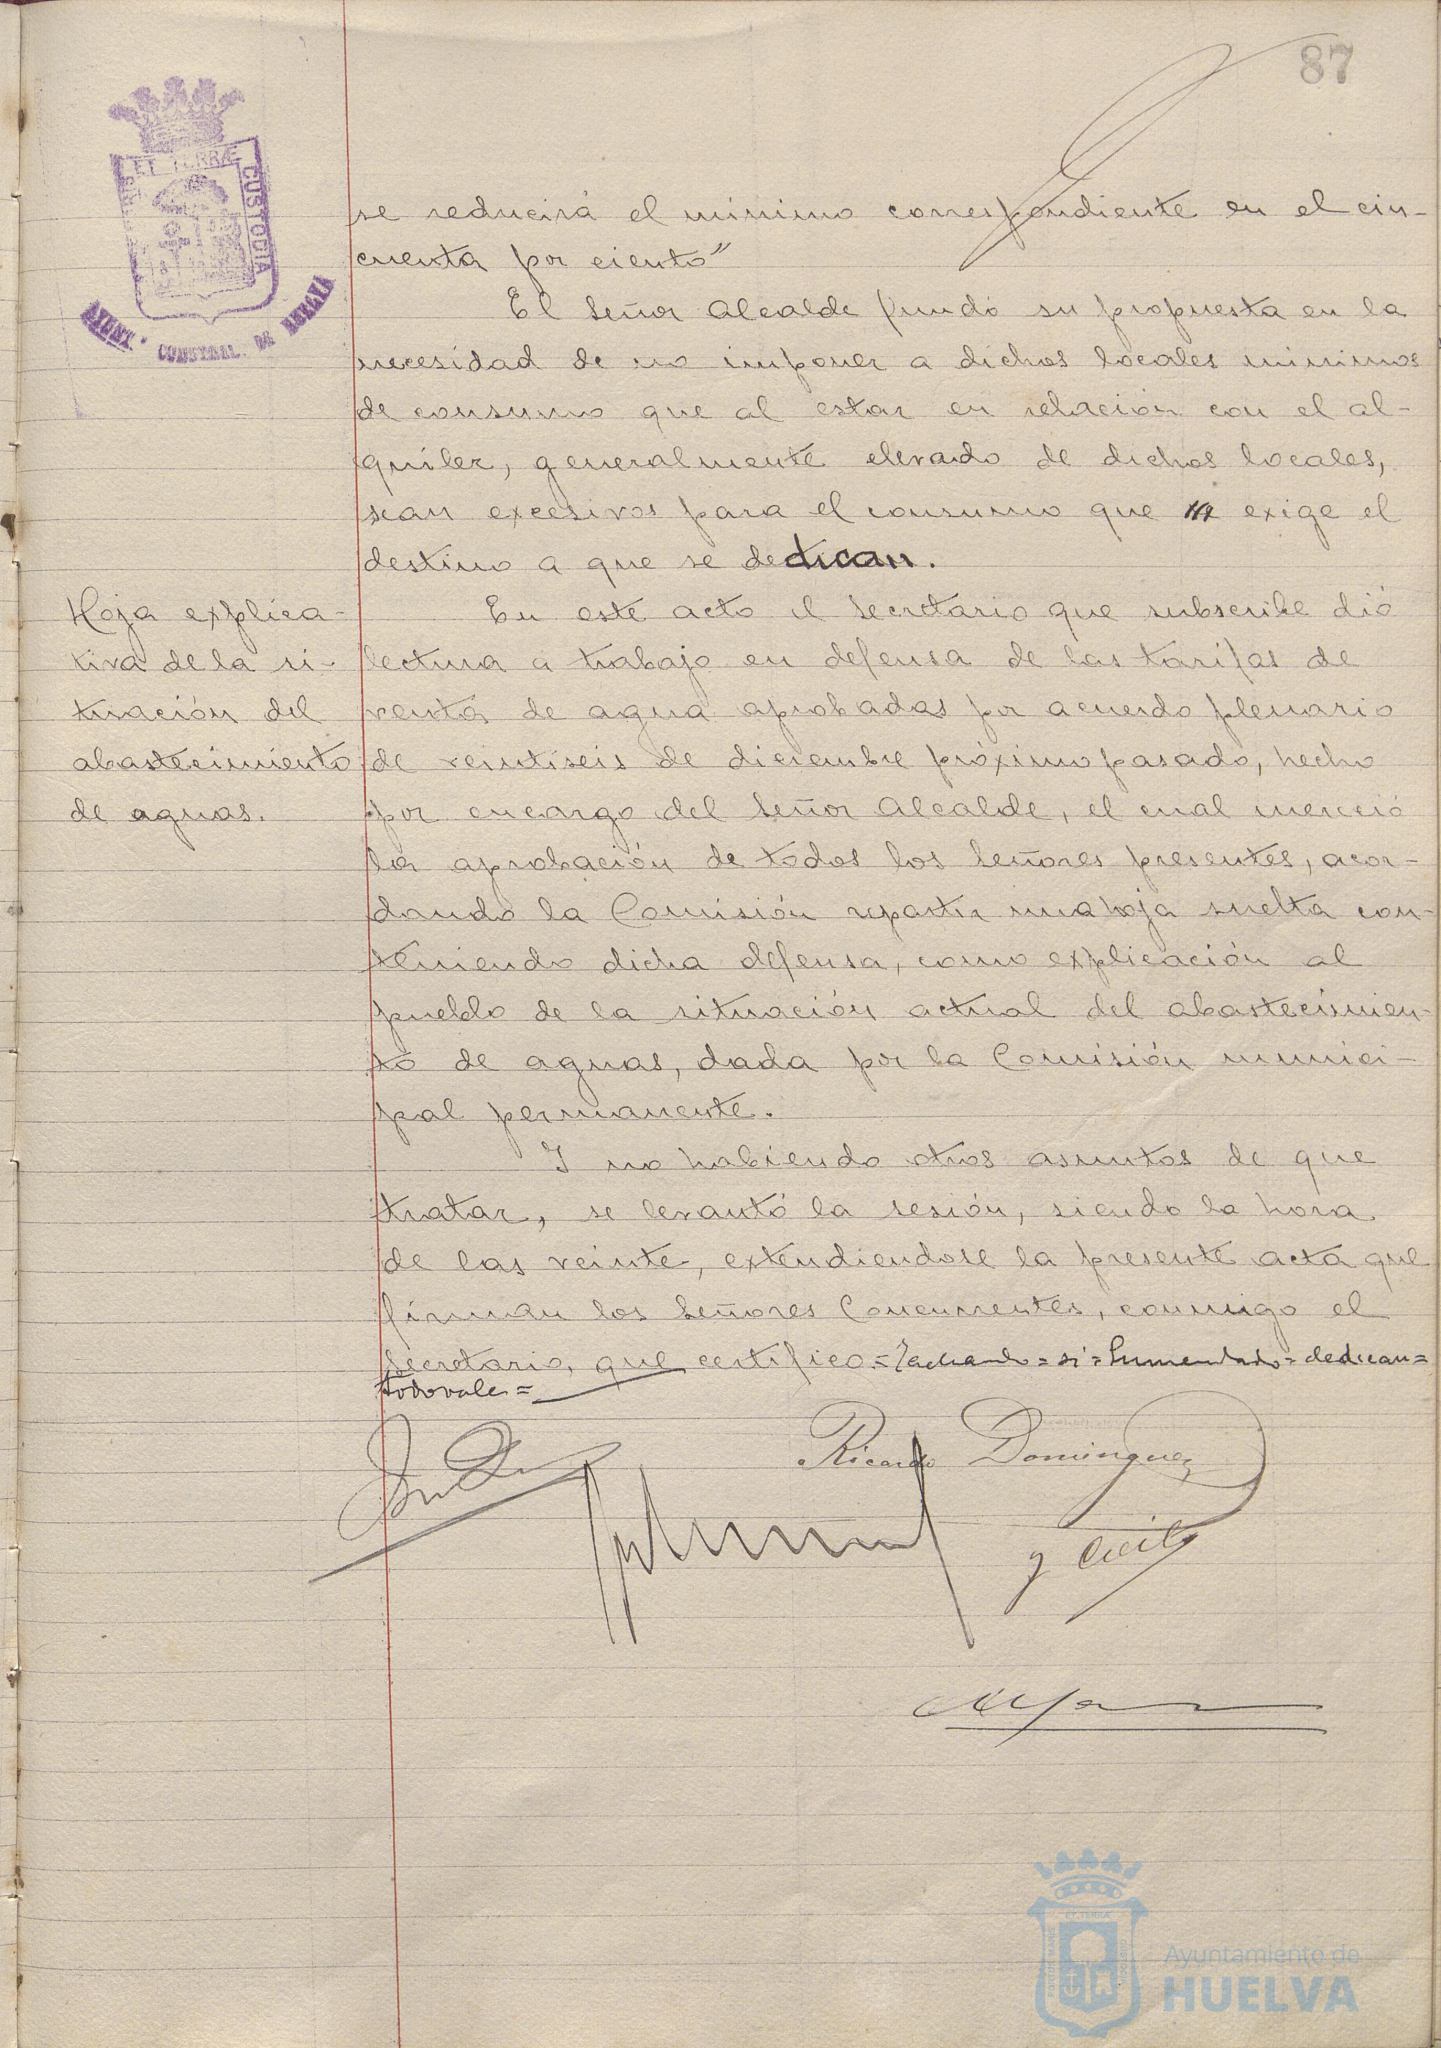 87
PORTUS MARIS ET TERRÆ CUSTODIA
AYUNT. CONSTBAL. DE HUELVA
se reducirá el mínimo correspondiente en el cin-
cuenta por ciento"
El Señor Alcalde fundó su propuesta en la
necesidad de no imponer a dichos locales mínimos
de consumo que al estar en relación con el al-
quiler, generalmente elevado de dichos locales,
sean excesivos para el consumo que exige el
destino a que se dedican.
Hoja explica-
tiva de la si-
tuación del
abastecimiento
de aguas.
En este acto el Secretario que subscribe dió
lectura a trabajo en defensa de las tarifas de
venta de agua aprobadas por acuerdo plenario
de veintiseis de diciembre próximo pasado, hecho
por encargo del Señor Alcalde, el cual mereció
la aprobación de todos los Señores presentes, acor-
dando la Comisión repartir una hoja suelta con-
teniendo dicha defensa, como explicación al
pueblo de la situación actual del abastecimien-
to de aguas, dada por la Comisión munici-
pal permanente.
Y no habiendo otros asuntos de que
tratar, se levantó la sesión, siendo la hora
de las veinte, extendiendose la presente acta que
firman los Señores Concurrentes, conmigo el
Secretario, que certifico.=Tachado=si=Enmendado=dedican=
todo vale=
Ricardo Dominguez
y
Ayuntamiento de
HUELVA